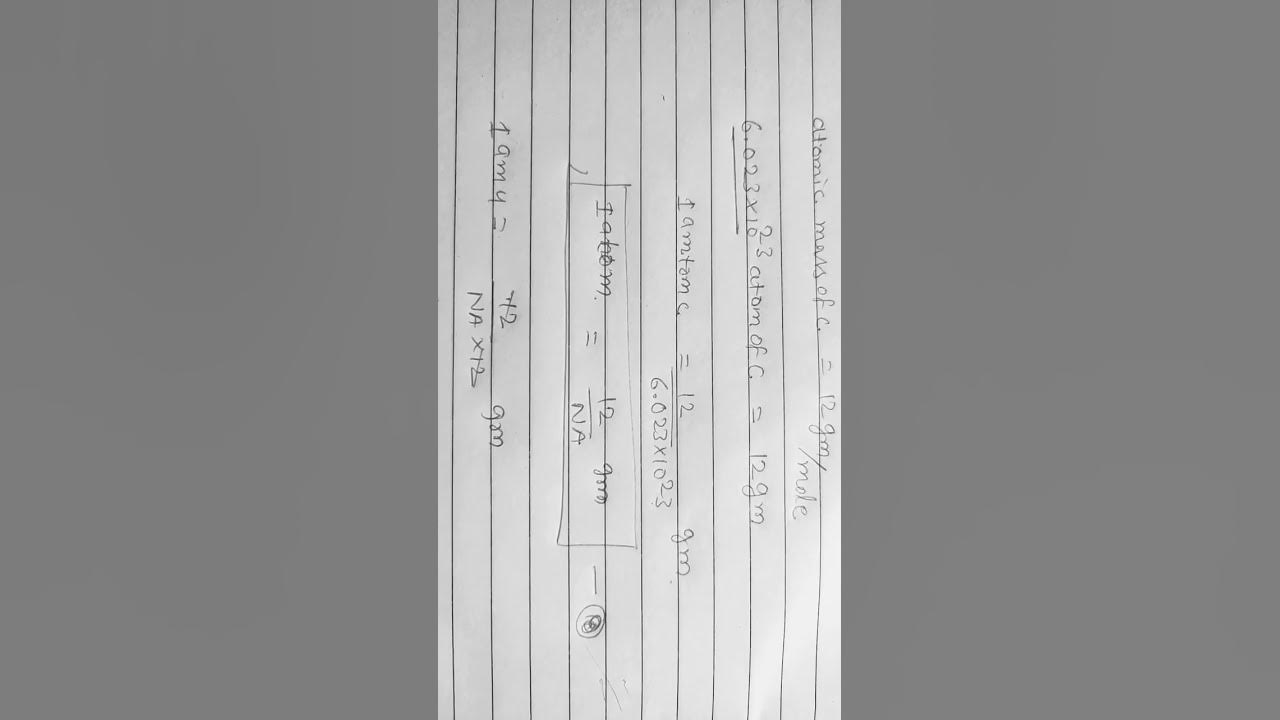 atomic mass of C. = 12 gm/mole
6.023×10²³ atom of C = 12 gm
1 amtom c = 12/6.023×10²³ gm
1 atom. = 12/NA gm —
1 amu = 12/NA×12 gm